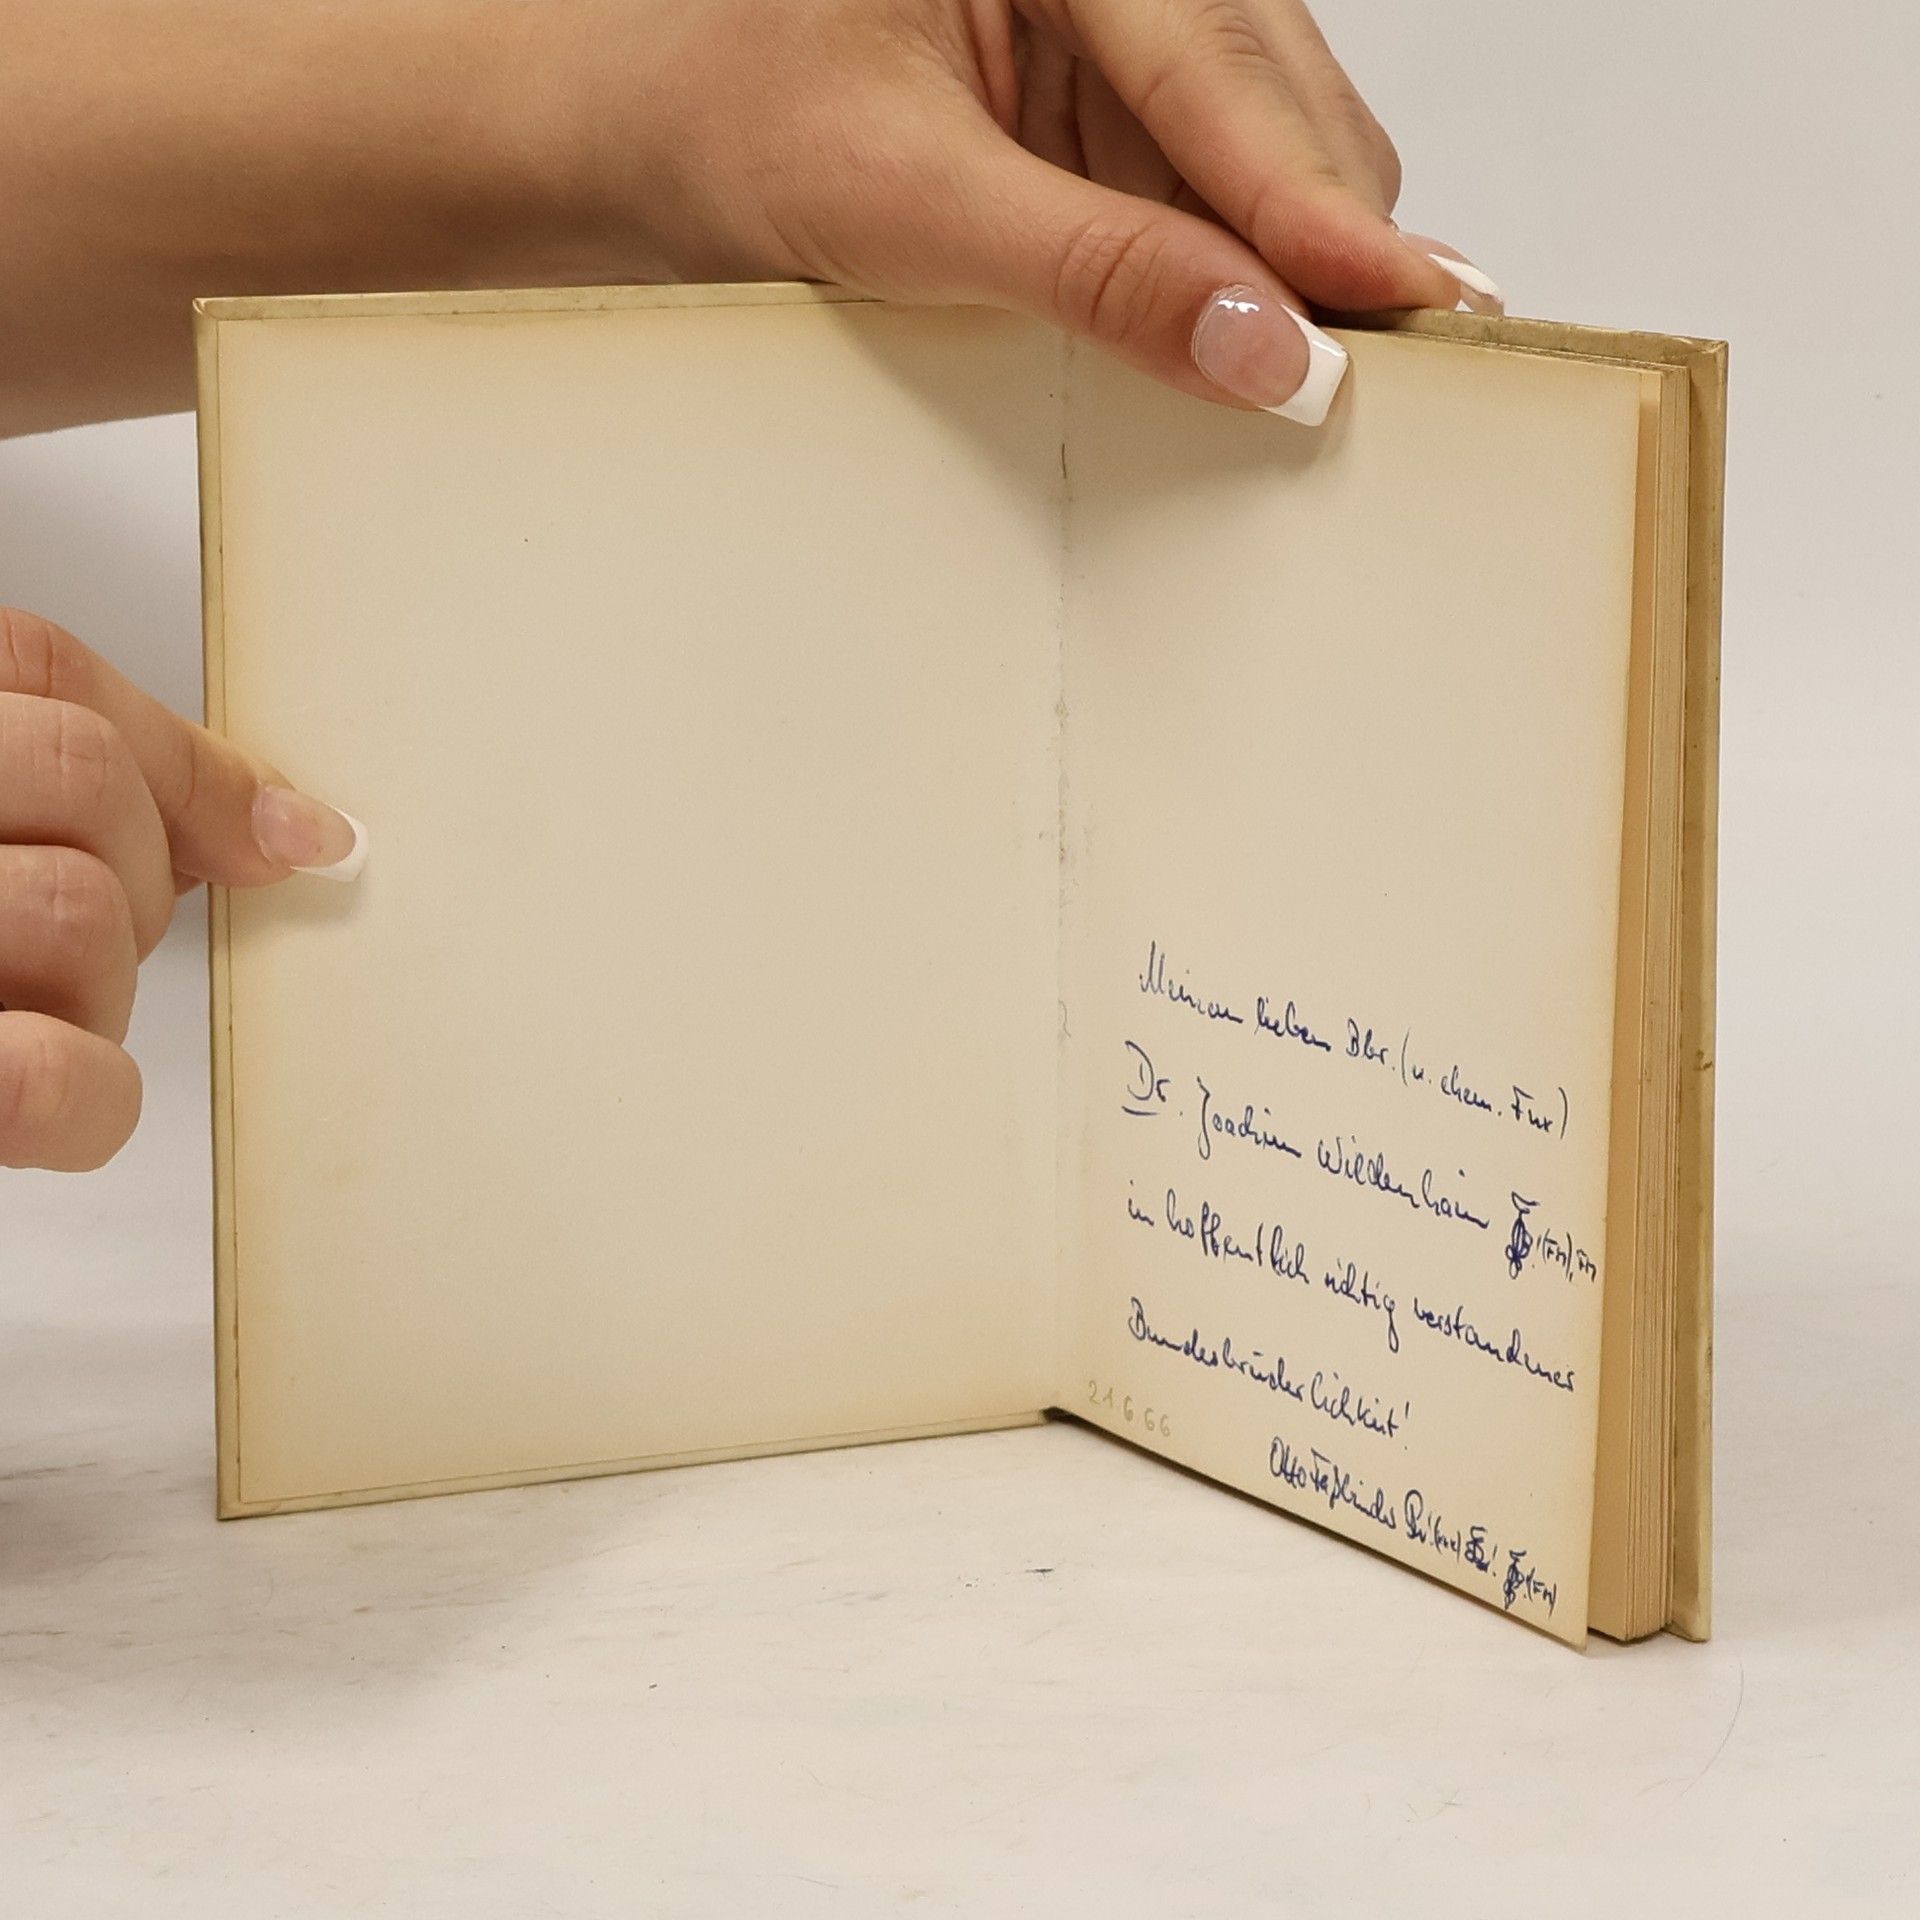 Meinem lieben Bbr. (u. ehem. Fux)
Dr. Joachim Wildenhain ! (FM), FM
in hoffentlich richtig verstandener
Bundesbrüderlichkeit!
21.6.66
Otto Faßbinder